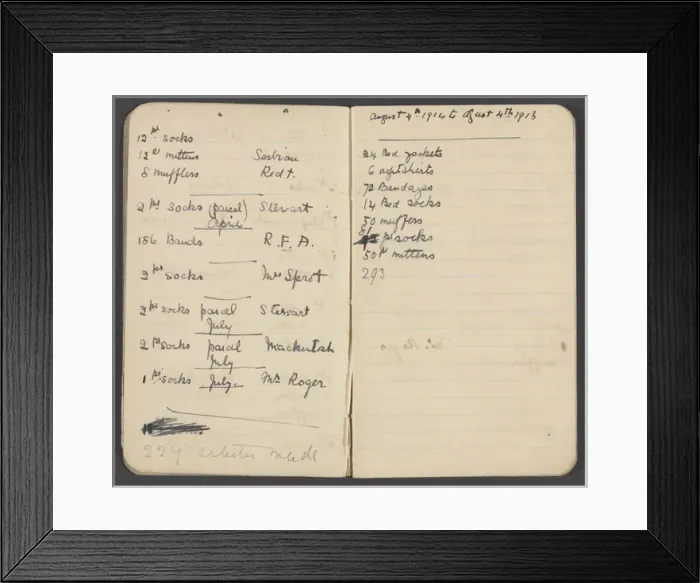 12 prs socks
12 prs mittens Serbian
8 mufflers Red †.
2 prs socks (parcel) Stewart
April
156 Bands R.F.A.
2 prs socks Mrs Sprot
2 prs socks parcel Stewart
July
2 prs socks parcel Mackintosh
July
1 prs socks July. Mrs Roger
227 articles made
August 4th 1914 to August 4th 1915
24 Bed jackets
6 nightshirts
72 Bandages
14 Bed socks
50 mufflers
81
pr socks
50 pr mittens
293